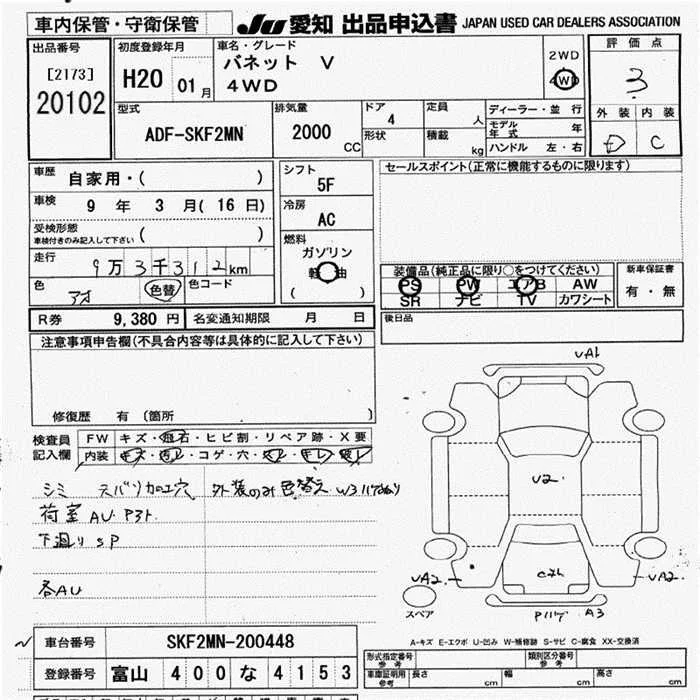 車内保管・守衛保管
JU 愛知 出品申込書 JAPAN USED CAR DEALERS ASSOCIATION
出品番号
[2173]
20102
初度登録年月
H20 01 月
車名・グレード
バネット V
4WD
2WD
4WD
評価点
3
外装 内装
D C
型式
ADF-SKF2MN
排気量
2000 CC
ドア
4
形状
定員
人
積載
kg
ディーラー・並 行
モデル年式 年
ハンドル 左・右
車歴 自家用・( )
車検 9 年 3 月( 16 日)
受検形態
車検付きのみ記入して下さい ( )
走行 9万3千312km
色 アオ 色替 色コード
シフト
5F
冷房
AC
燃料
ガソリン
軽油
( )
セールスポイント(正常に機能するものに限ります)
装備品(純正品に限り○をつけてください)
PS PW エアB AW
SR ナビ TV カワシート
新車保証書
有・無
R券 9,380 円 名変通知期限 月 日
後日品
注意事項申告欄(不具合内容等は具体的に記入して下さい)
修復歴 有 〔箇所 〕
検査員
記入欄
FW キズ・飛石・ヒビ割・リペア跡・X要
内装 キズ・汚レ・コゲ・穴・
キレ・破レ
シミ ネバリ 加工穴 外装のみ色替え W3
荷室AU P3ト
下廻りSP
各AU
UA1
U2
UA2 UA2
A3
スペア
A-キズ E-エクボ U-凹み W-補修跡 S-サビ C-腐食 XX-交換済
車台番号 SKF2MN-200448
登録番号 富山 400 な 4153
形式指定番号
参考
類別区分番号
参考
車庫証明用
参考
長さ cm 幅 cm 高さ cm